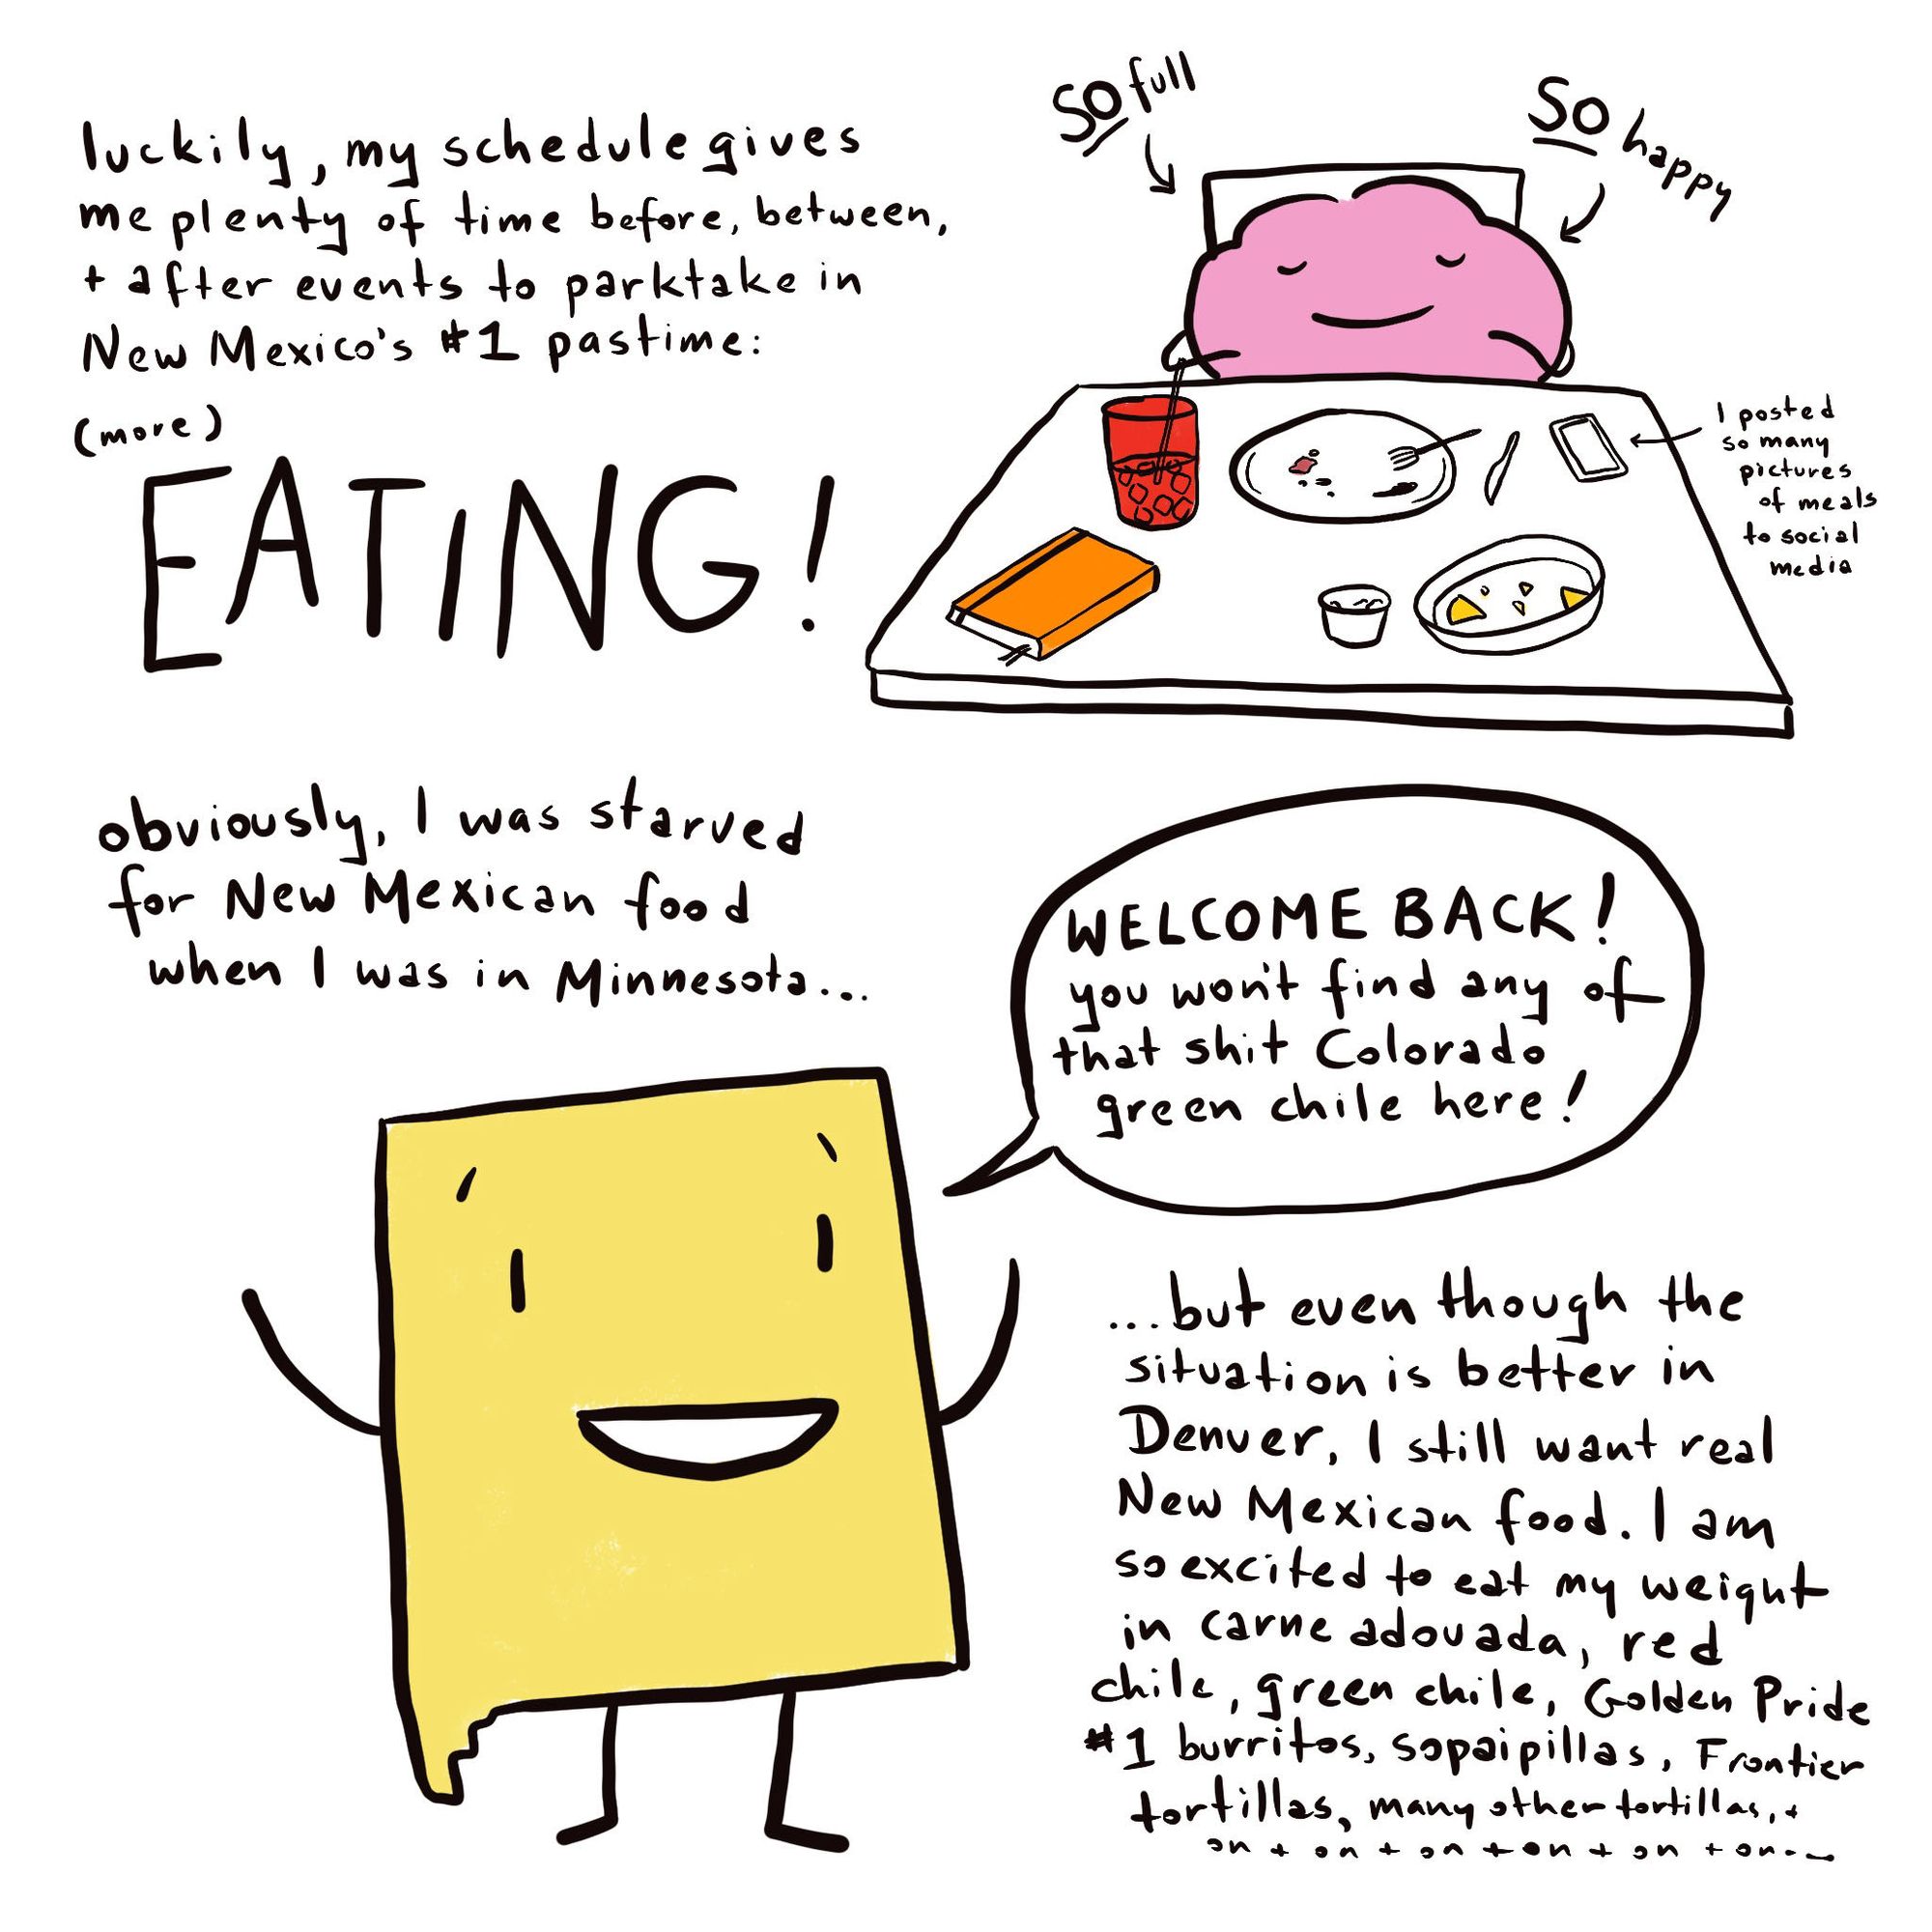 luckily, my schedule gives
me plenty of time before, between,
+ after events to parktake in
New Mexico's #1 pastime:
(more)
EATING!
SO full
SO happy
I posted
so many
pictures
of meals
to social
media
obviously, I was starved
for New Mexican food
when I was in Minnesota...
WELCOME BACK!
you won't find any of
that shit Colorado
green chile here!
...but even though the
situation is better in
Denver, I still want real
New Mexican food. I am
so excited to eat my weight
in carne adovada, red
chile, green chile, Golden Pride
#1 burritos, sopaipillas, Frontier
tortillas, many other tortillas, +
on + on + on + on + on + on...